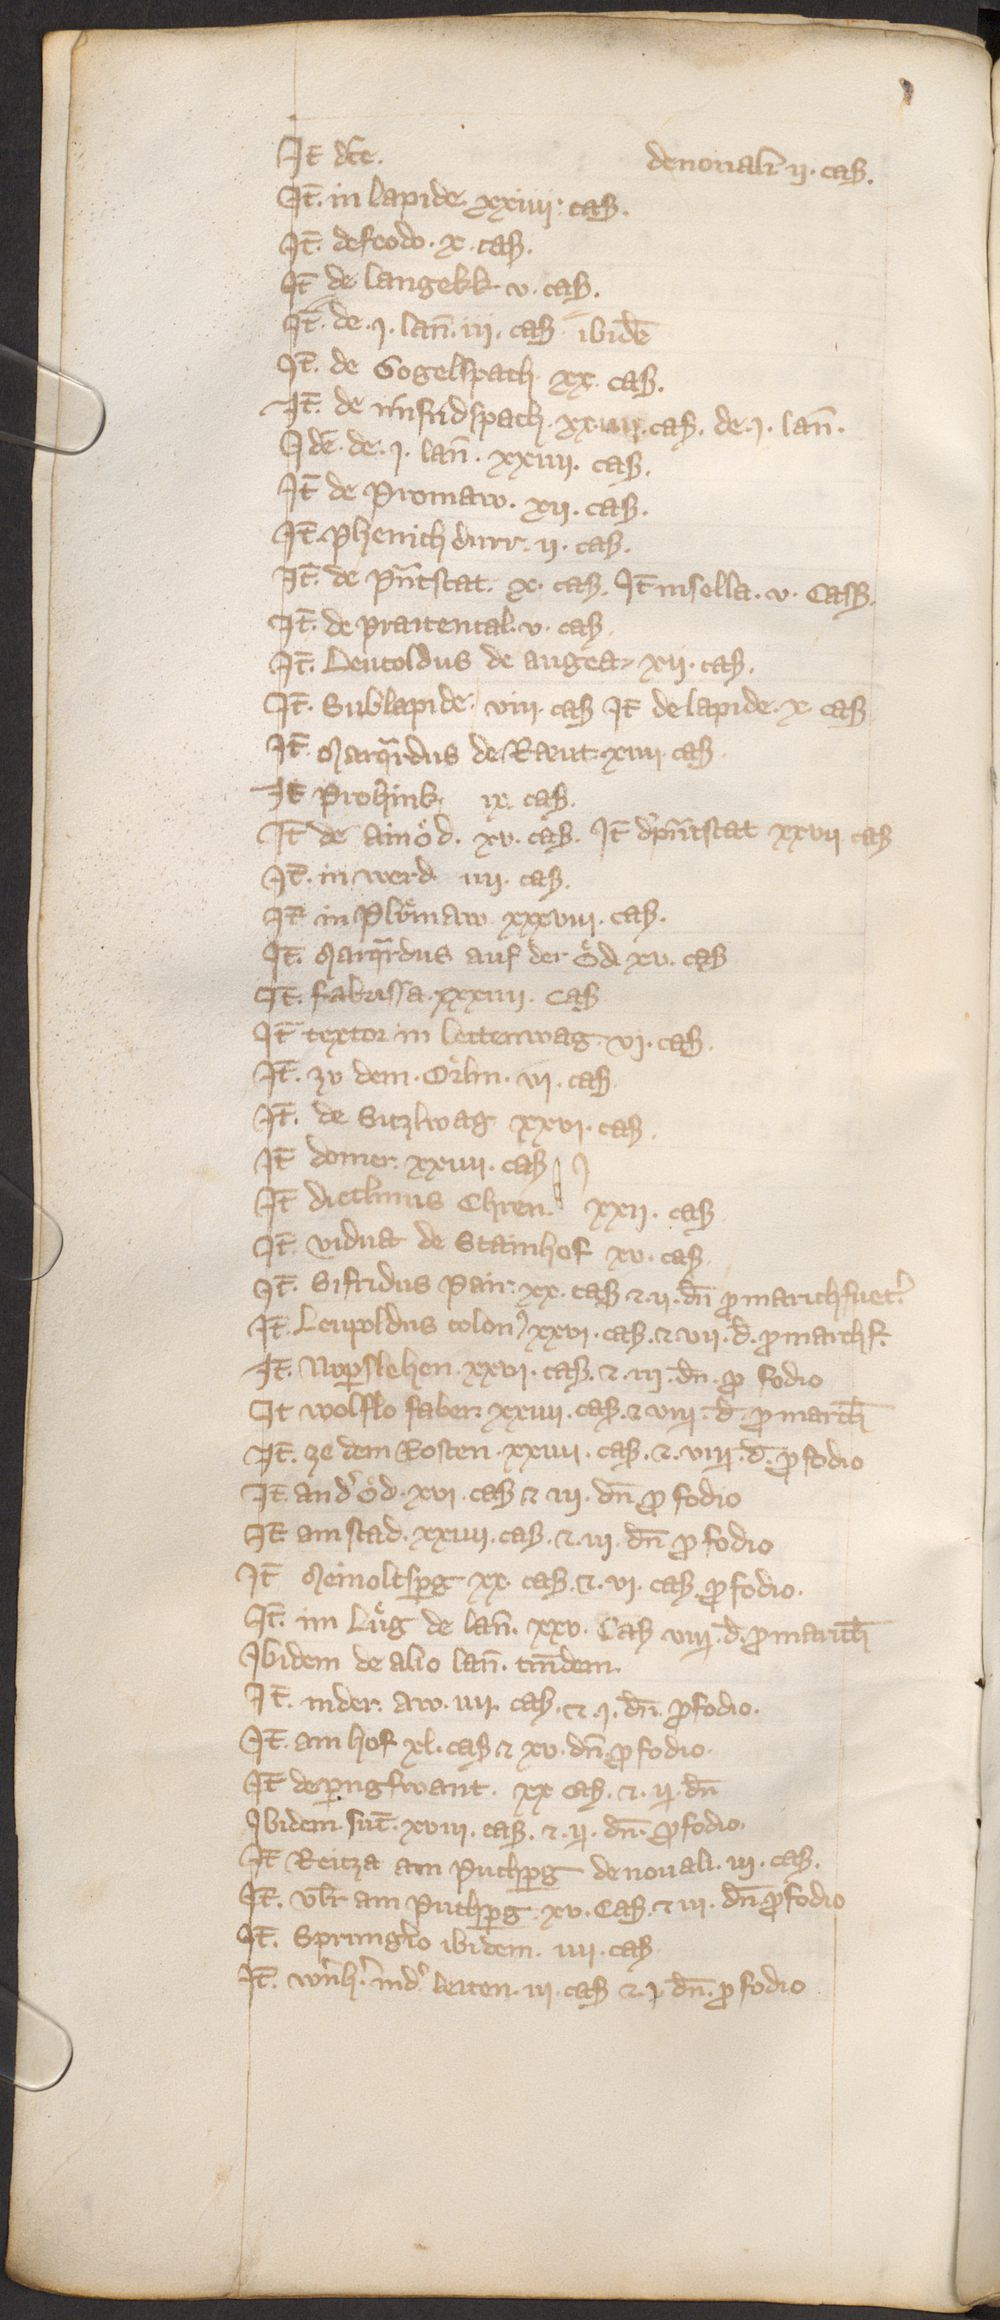 Jt̄ dc̄e. denouali ij. cas.
Jt̄. in lapide. xxiiij. cas.
Jt̄. de feodo. x. cas.
Jt̄ de langekk v. cas.
Jt̄. de. j. lan̄. iij. cas ibidē
Jt̄. de Gogelspach xx. cas.
Jt̄. de xxiiij. cas. de. j. lan̄.
Jdē. de. j. lan̄. xxiiij. cas.
Jt̄ de Promaw. xij. cas.
Jt̄. phenich durr. ij. cas.
Jt̄. de pn̄tstat. x. cas. Jt̄ insella. v. Cass.
Jt̄. de praitental. v. cas.
Jt̄. Leutoldus de augea xij. cas.
Jt̄. Sublapide. viij. cas Jt̄ de lapide. x. cas
Jt̄. Marq̄rdus de Raeut. xiiij. cas
Jt̄ ix. cas.
Jt̄ de ainöd. xv. cas. Jt̄ d' pn̄tstat xxvij cas
Jt̄. in werd. iiij. cas.
Jt̄ in Plömaw xxxviij. cas.
Jt̄. Marq̄rdus auf der öd. xv. cas
Jt̄. fabrissa. xxxiiij. cas
Jt̄ textor in lettenwag. vj. cas.
Jt̄. zv dem. Örlin. vj. cas
Jt̄. de Sitzlwag xxvj. cas.
Jt̄ domer. xxiiij. cas
Jt̄ dietlmus Chren. xxij. cas
Jt̄. vidua de Stainhof xv. cas.
Jt̄. Sifridus Pair. xx. cas ⁊. ij. dn̄ ꝓ marichfuet'.
Jt̄. Leupoldus colonꝰ xxvj. cas. ⁊ vij. d̄. ꝓ marchf.
Jt̄. Rup̱slehen. xxvj. cas. ⁊. iij. dn̄. ꝓ fodio
Jt wolflo faber. xxiiij. cas. ⁊ viij. d̄. ꝓ march̄
Jt̄. ze dem Rosten. xxiiij. cas. ⁊. viij. d̄. ꝓ fodio
Jt̄. and' öd. xvj. cas ⁊ iij. dn̄ ꝓ fodio
Jt̄ am stad. xxiiij. cas. ⁊. iij. dn̄ ꝓ fodio
Jt̄ Meinoltsp̱g xx. cas. ⁊. vj. cas. ꝓ fodio.
Jt̄. im Lüg de lan̄. xxv. Cas viij. d̄. ꝓ marich̄
Jbidem de alio lan̄. tm̄dem.
Jt̄. inder. aw. iiij. cas. ⁊. j. dn̄. ꝓ fodio.
Jt̄. am hof xl. cas ⁊ xv. dn̄. ꝓ fodio.
Jt̄ de xx cas. ⁊. ij. dn̄
Jbidem. sūt. xviij. cas. ⁊. ij. dn̄. ꝓ fodio.
Jt̄ Reitza am Puchp̱g denouali. iij. cas.
Jt̄. vl̄r am Puchp̱g. xv. Cas. ⁊ iij. dn̄. ꝓ fodio
Jt̄. ibidem. iiij. cas
Jt̄. wn̄h'. ind' leiten. iij. cas ⁊. j dn̄. ꝓ fodio